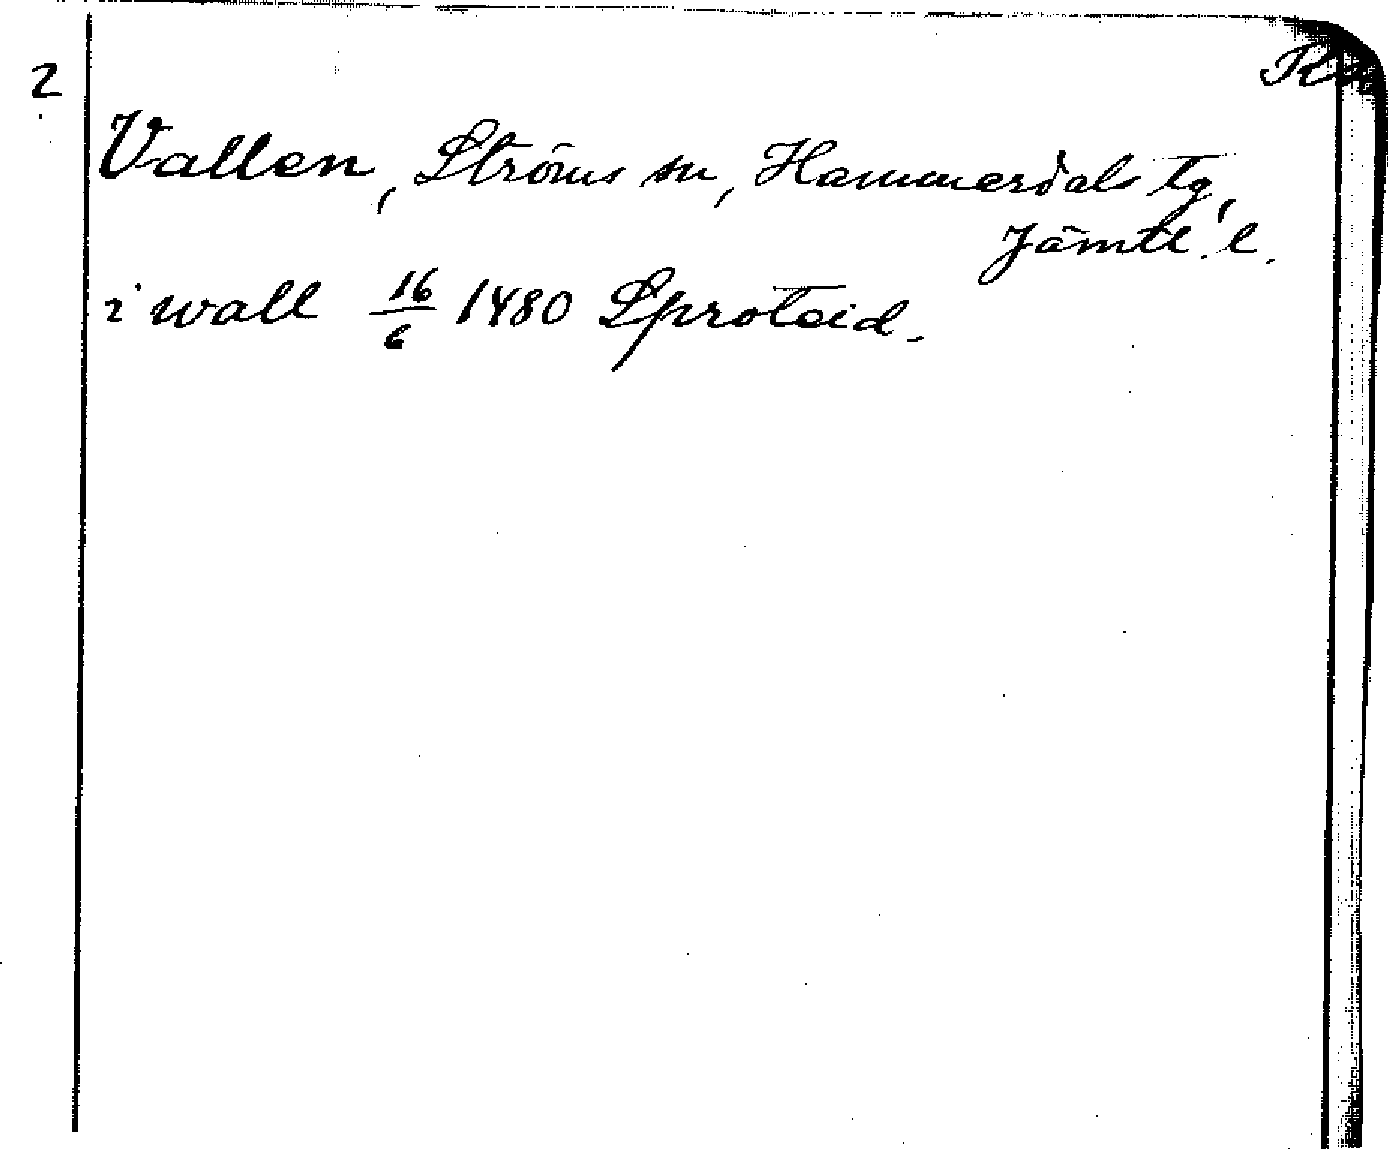 2
Vallen, Ströms sn, Hammerdals tg,
Jämtl. l.
i wall 16/6 1480 Sproteid.